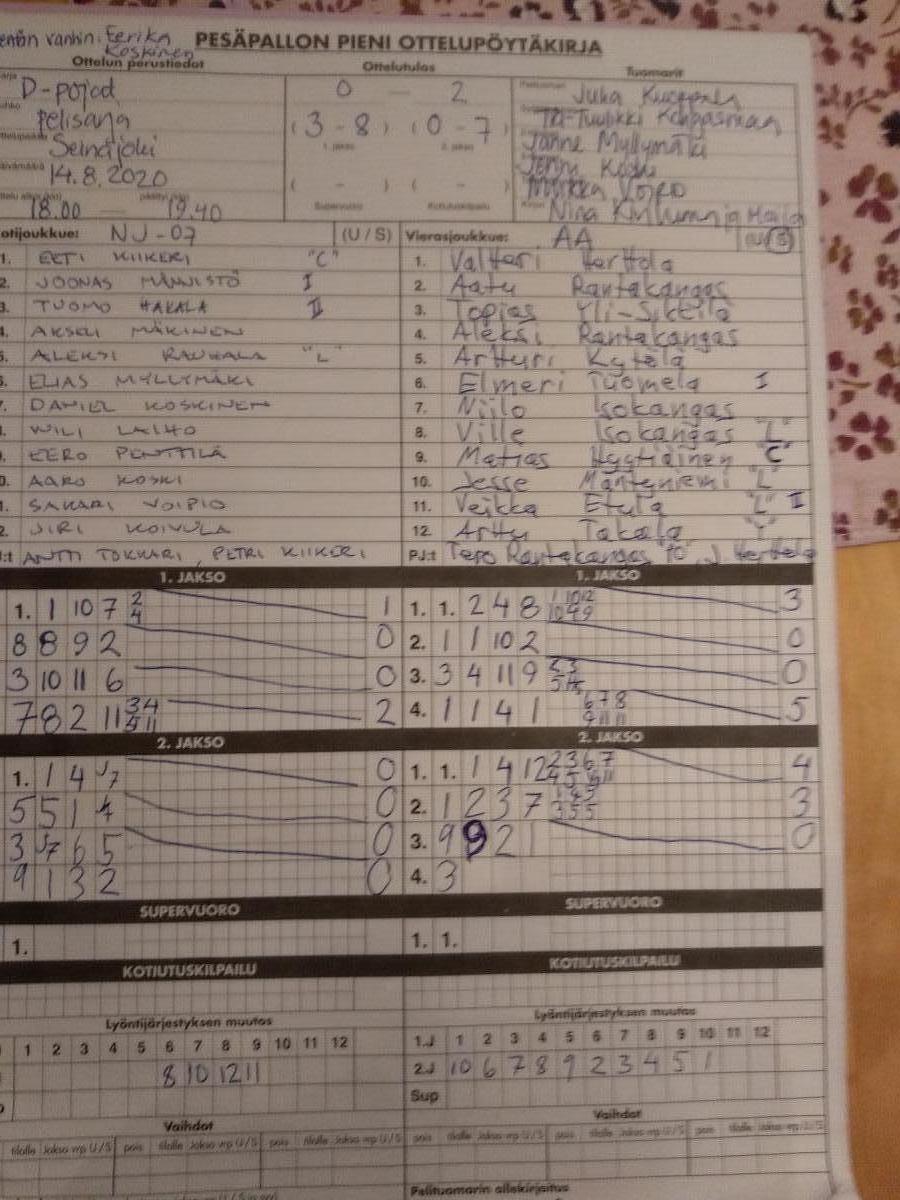 Eerika
Koskinen
PESÄPALLON PIENI OTTELUPÖYTÄKIRJA
Ottelun perustiedot Ottelutulos Tuomarit
D-pojat 0 - 2 Juha
pelisana (3-8) (0-7)
1. jakso 2. jakso
Seinäjoki Janne Myllymäki
14.8.2020 Jenni Koski
( - ) ( - )
Supervuoro Kotiutuskilpailu
18.00 19.40 Nina
NJ-07 (U / S) Vierasjoukkue: AA (U/S)
1. EETI KIIKERI "C" 1. Valtteri Herttola
2. JOONAS MÄNNISTÖ I 2. Aatu Rantakangas
3. TUOMO HAKALA II 3. Topias
AKSELI MÄKINEN 4. Aleksi Rantakangas
ALEKSI RAUHALA "L" 5. Artturi Kytölä
ELIAS MYLLYMÄKI 6. Elmeri Tuomela I
DANIEL KOSKINEN 7. Niilo Isokangas
WILI LAIHO 8. Ville Isokangas "L"
EERO PENTTILÄ 9. Matias "C"
AARO KOSKI 10. Jesse Mäntyniemi "L"
SAKARI VOIPIO 11. Veikka Etula "L" II
JIRI KOIVULA 12. Arttu Takala
ANTTI TOKKARI, PETRI KIIKERI PJ:t Tero Rantakangas J. Herttola
1. JAKSO 1. JAKSO
1. 1 10 7 2 4 1 1. 1. 2 4 8 3
8 8 9 2 0 2. 1 1 10 2 0
3 10 11 6 0 3. 3 4 11 9 0
7 8 2 11 2 4. 1 1 4 1 6 7 8 5
2. JAKSO 2. JAKSO
1. 1 4 7 0 1. 1. 1 4 12 2 3 6 7 4
5 5 1 4 0 2. 1 2 3 7 3
3 7 6 5 0 3. 9 9 2 1 0
9 1 3 2 0 4. 3
SUPERVUORO SUPERVUORO
1. 1. 1.
KOTIUTUSKILPAILU KOTIUTUSKILPAILU
Lyöntijärjestyksen muutos Lyöntijärjestyksen muutos
1 2 3 4 5 6 7 8 9 10 11 12 1.J 1 2 3 4 5 6 7 8 9 10 11 12
8 10 12 11 2.J 10 6 7 8 9 2 3 4 5 1
Sup
Vaihdot Vaihdot
tilalle Jakso vrp U/S pois tilalle Jakso vrp U/S pois tilalle Jakso vrp U/S pois tilalle Jakso vrp U/S pois tilalle Jakso vrp U/S pois tilalle Jakso vrp U/S
Pelituomarin allekirjoitus